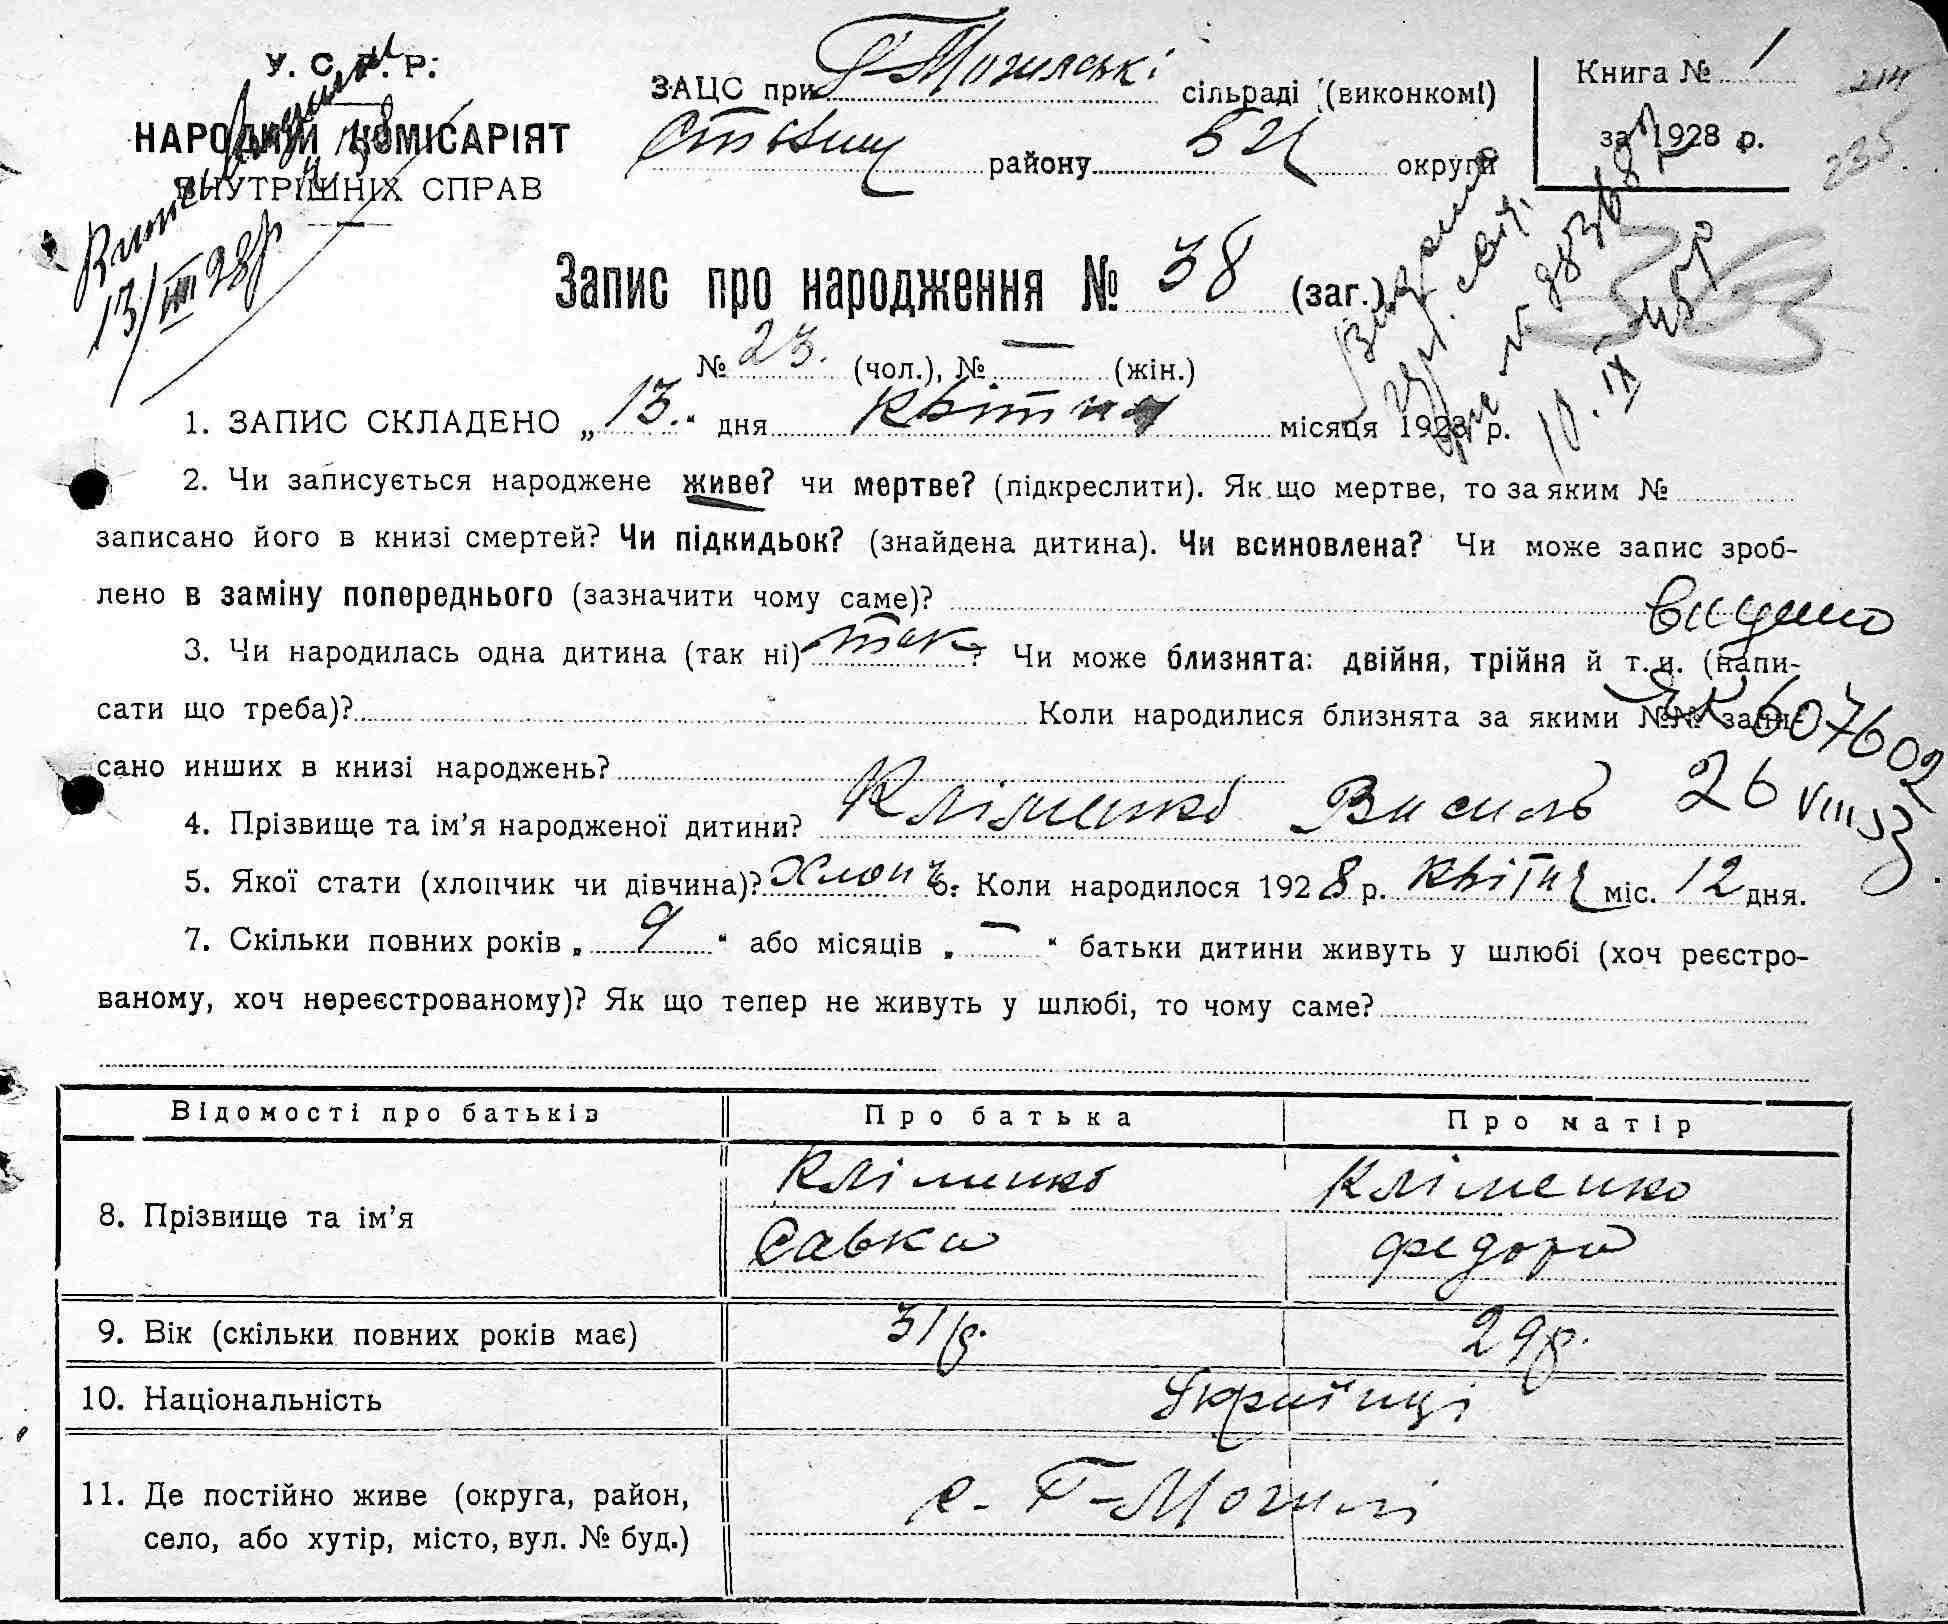 У. С. Р. Р.
НАРОДНИЙ КОМІСАРІЯТ
ВНУТРІШНІХ СПРАВ
13/III 28р
ЗАЦС при Г-Могилські сільраді (виконкомі)
району БЦ округи
Книга № 1
за 1928 р.
214
235
Запис про народження № 38 (заг.)
№ 23. (чол.), № — (жін.)
1. ЗАПИС СКЛАДЕНО „13.“ дня Квітня місяця 1928 р.
10. IX
2. Чи записується народжене живе? чи мертве? (підкреслити). Як що мертве, то за яким №
записано його в книзі смертей? Чи підкидьок? (знайдена дитина). Чи всиновлена? Чи може запис зроб-
лено в заміну попереднього (зазначити чому саме)?
видано
3. Чи народилась одна дитина (так ні) так? Чи може близнята: двійня, трійня й т. и. (напи-
сати що треба)? Коли народилися близнята за якими №№ запи-
ЯК 607602
сано инших в книзі народжень?
26 VIII 53
4. Прізвище та ім’я народженої дитини? Кліменко Василь
5. Якої стати (хлопчик чи дівчина)? Хлопч. Коли народилося 1928 р. квітня міс. 12 дня.
7. Скільки повних років „ 9 “ або місяців „ — “ батьки дитини живуть у шлюбі (хоч реєстро-
ваному, хоч нереєстрованому)? Як що тепер не живуть у шлюбі, то чому саме?
Відомості про батьків Про батька Про матір
8. Прізвище та ім’я Кліменко Кліменко
Савка Федора
9. Вік (скільки повних років має) 31 р. 29 р.
10. Національність Українці
11. Де постійно живе (округа, район,
село, або хутір, місто, вул. № буд.)
с. Г-Могилі